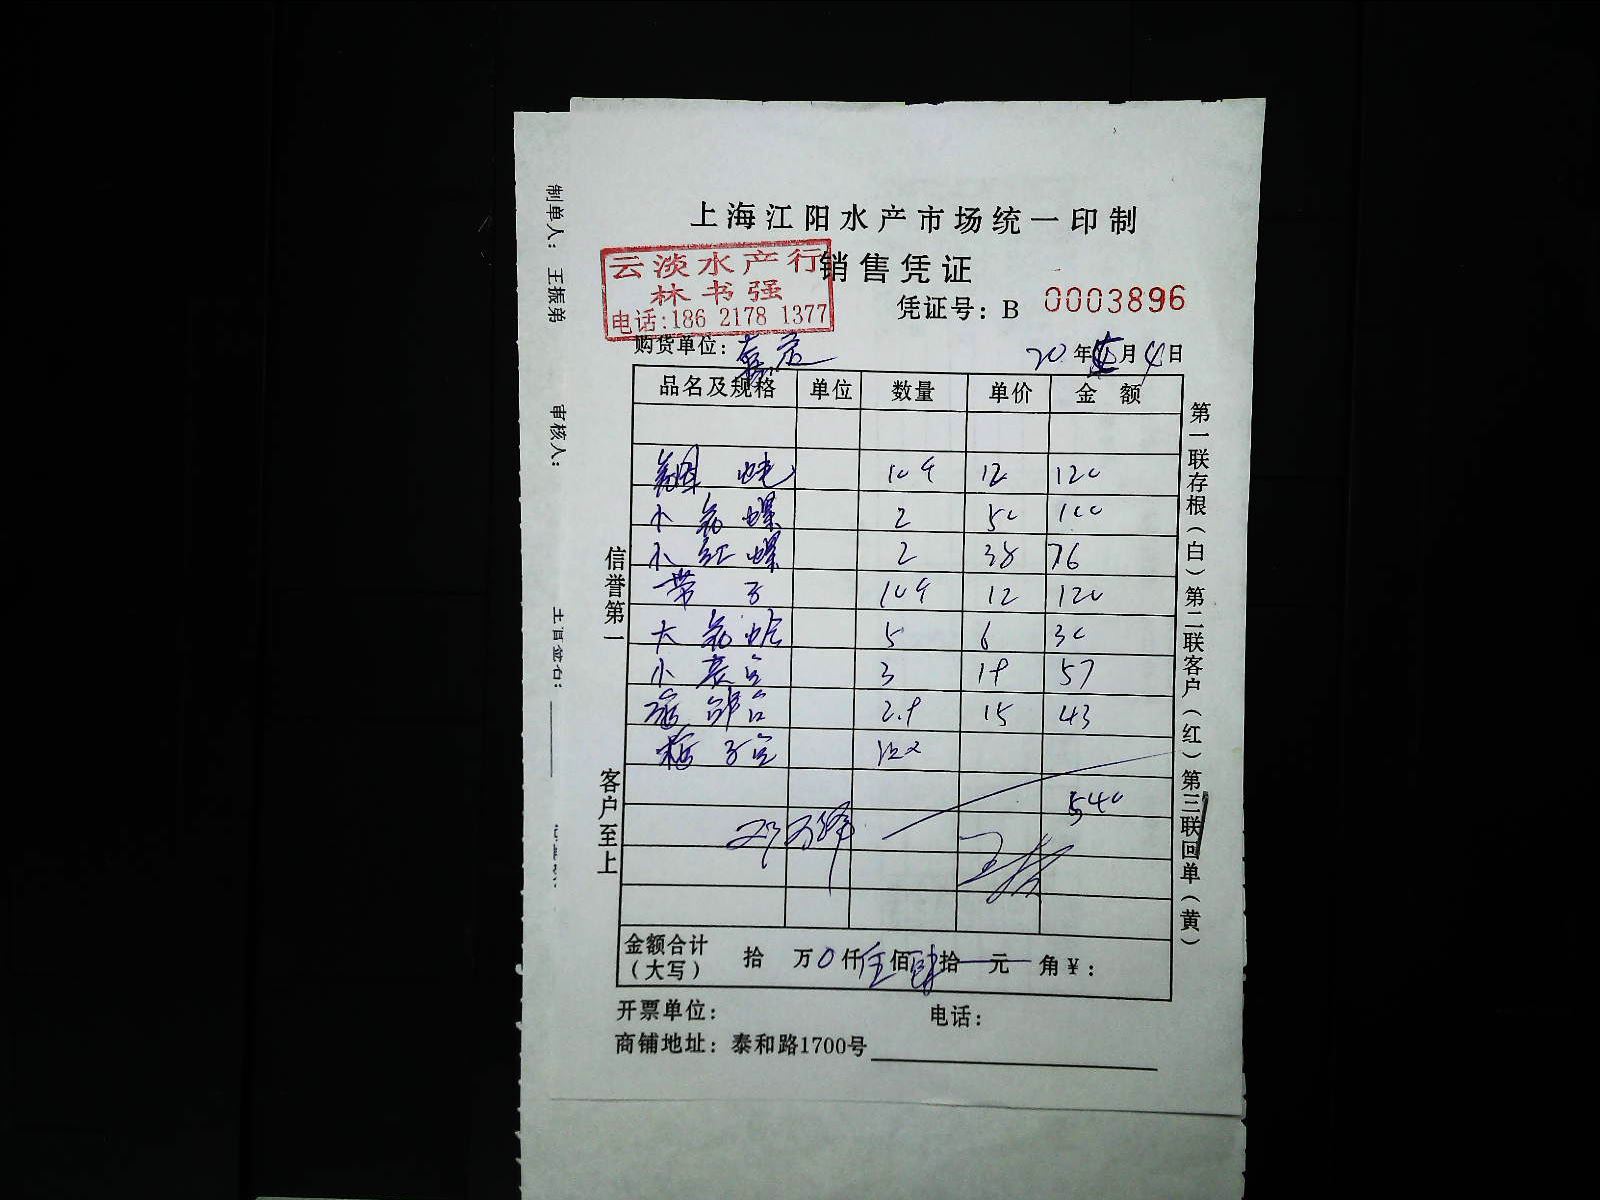 上海江阳水产市场统一印制
销售凭证
云淡水产行
林书强
电话:186 2178 1377
凭证号：B 0003896
购货单位：嘉定
20 年 月 4 日
品名及规格 单位 数量 单价 金额
12 120
小 螺 2 50 100
小红螺 2 38 76
带子 12 120
大 蛤 5 6 30
小 3 19 57
2.9 15 43
子
540
金额合计（大写） 拾 万 0 仟 伍 佰 肆 拾 元 角 ¥：
开票单位： 电话：
商铺地址：泰和路1700号
信誉第一
客户至上
第一联存根（白）第二联客户（红）第三联回单（黄）
制单人：王振弟
审核人：